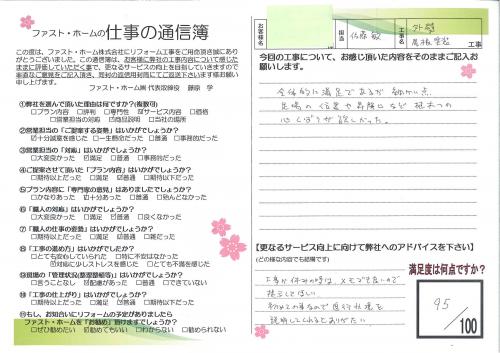 ファスト・ホームの 仕事の通信簿
この度は、ファスト・ホーム株式会社にリフォーム工事をご用命頂き誠にあり
がとうございました。この通信簿は、お客様に弊社の工事内容について感じた
ままに評価していただく事で、更なるサービスの向上を目指していきますので
率直なご意見をご記入頂き、同封の返信用封筒にてご返送下さいます様お願い
申し上げます。
ファスト・ホーム㈱ 代表取締役 藤原 学
①弊社を選んで頂いた理由は何ですか?(複数可)
□プラン内容 □評判 □専門性 ☑サービス内容 □価格
□営業担当の対応 □商品説明 □当社の場所
②営業担当の「ご提案する姿勢」はいかがでしょうか?
□十分誠意を感じた □一生懸命だった □普通 □事務的だった
③営業担当の「対応」はいかがでしょうか?
□大変良かった □満足 □普通 □事務的だった
④ご提案させて頂いた「プラン内容」はいかがでしょうか?
□期待以上だった □満足 □普通 □期待以下だった
⑤プラン内容に「専門家の意見」はありましたでしょうか?
□かなりあった □十分あった □普通 □殆んどなかった
⑥「職人の対応」はいかがでしょうか?
□大変良かった □満足 □普通 □良くなかった
⑦「職人の仕事の姿勢」はいかがでしょうか?
□期待以上だった □満足 □普通 □雑だった
⑧「工事の進め方」はいかがでしたか?
□とても安心していられた □特に不安はなかった
□対応に少しストレスを感じた □とても不満だった
⑨現場の「管理状況(整理整頓等)」はいかがでしょうか?
□言うことなし □配慮があった □普通 □できていない
⑩「工事の仕上がり」はいかがでしょうか?
□期待以上だった □満足 □普通 □期待以下だった
⑪もし、お知り合いにリフォームの予定がありましたら
ファスト・ホームを「お勧め」頂けますでしょうか?
□ぜひ勧めたい □勧めてもいい □わからない □勧められない
お客様名
担当 佐藤敬
工事名 外壁
屋根塗装 工事
今回の工事について、お感じ頂いた内容をそのままご記入
お願いします。
全体的に満足であるが 細かい点
足場の
心くばりが欲しかった。
【更なるサービス向上に向けて弊社へのアドバイスを下さい】
(どの様な内容でも結構です)
工事が休みの時は メモでも良いので
提示してほしい
初めての事なので 進行状況を
説明してくれるとありがたい
満足度は何点ですか?
95
/100